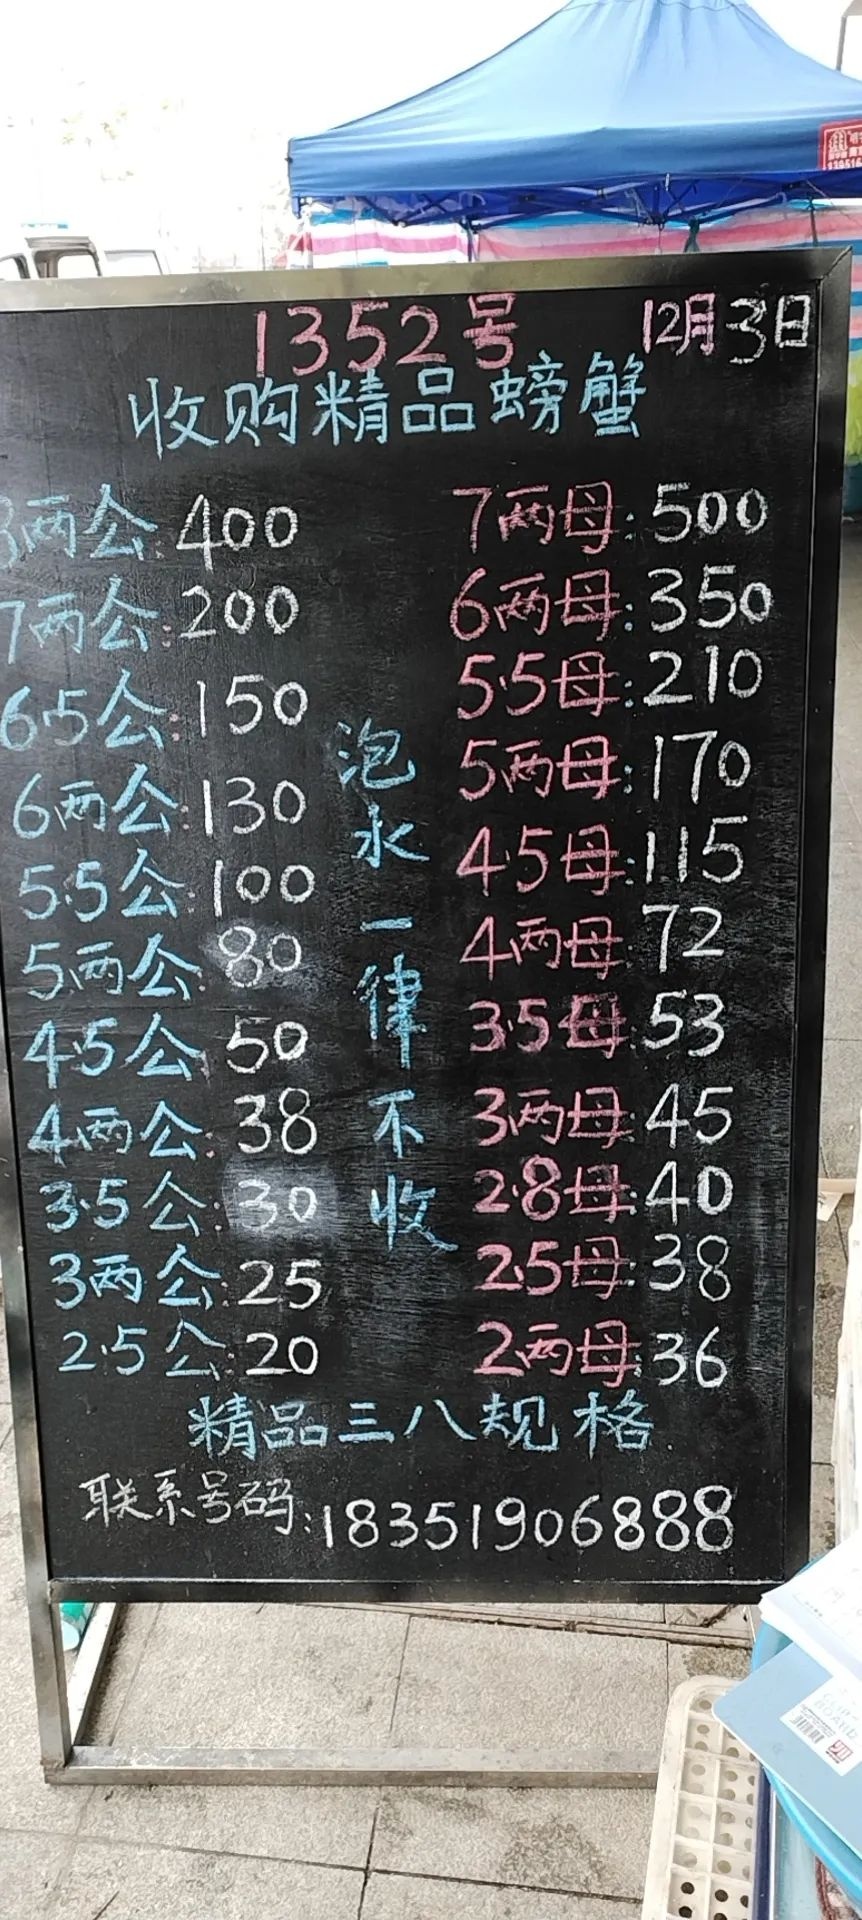 1352号 12月3日
收购精品螃蟹
8两公:400 7两母:500
7两公:200 6两母:350
6.5公:150 5.5母:210
6两公:130 5两母:170
5.5公:100 4.5母:115
5两公:80 4两母:72
4.5公:50 3.5母:53
4两公:38 3两母:45
3.5公:30 2.8母:40
3两公:25 2.5母:38
2.5公:20 2两母:36
泡水一律不收
精品三八规格
联系号码:18351906888